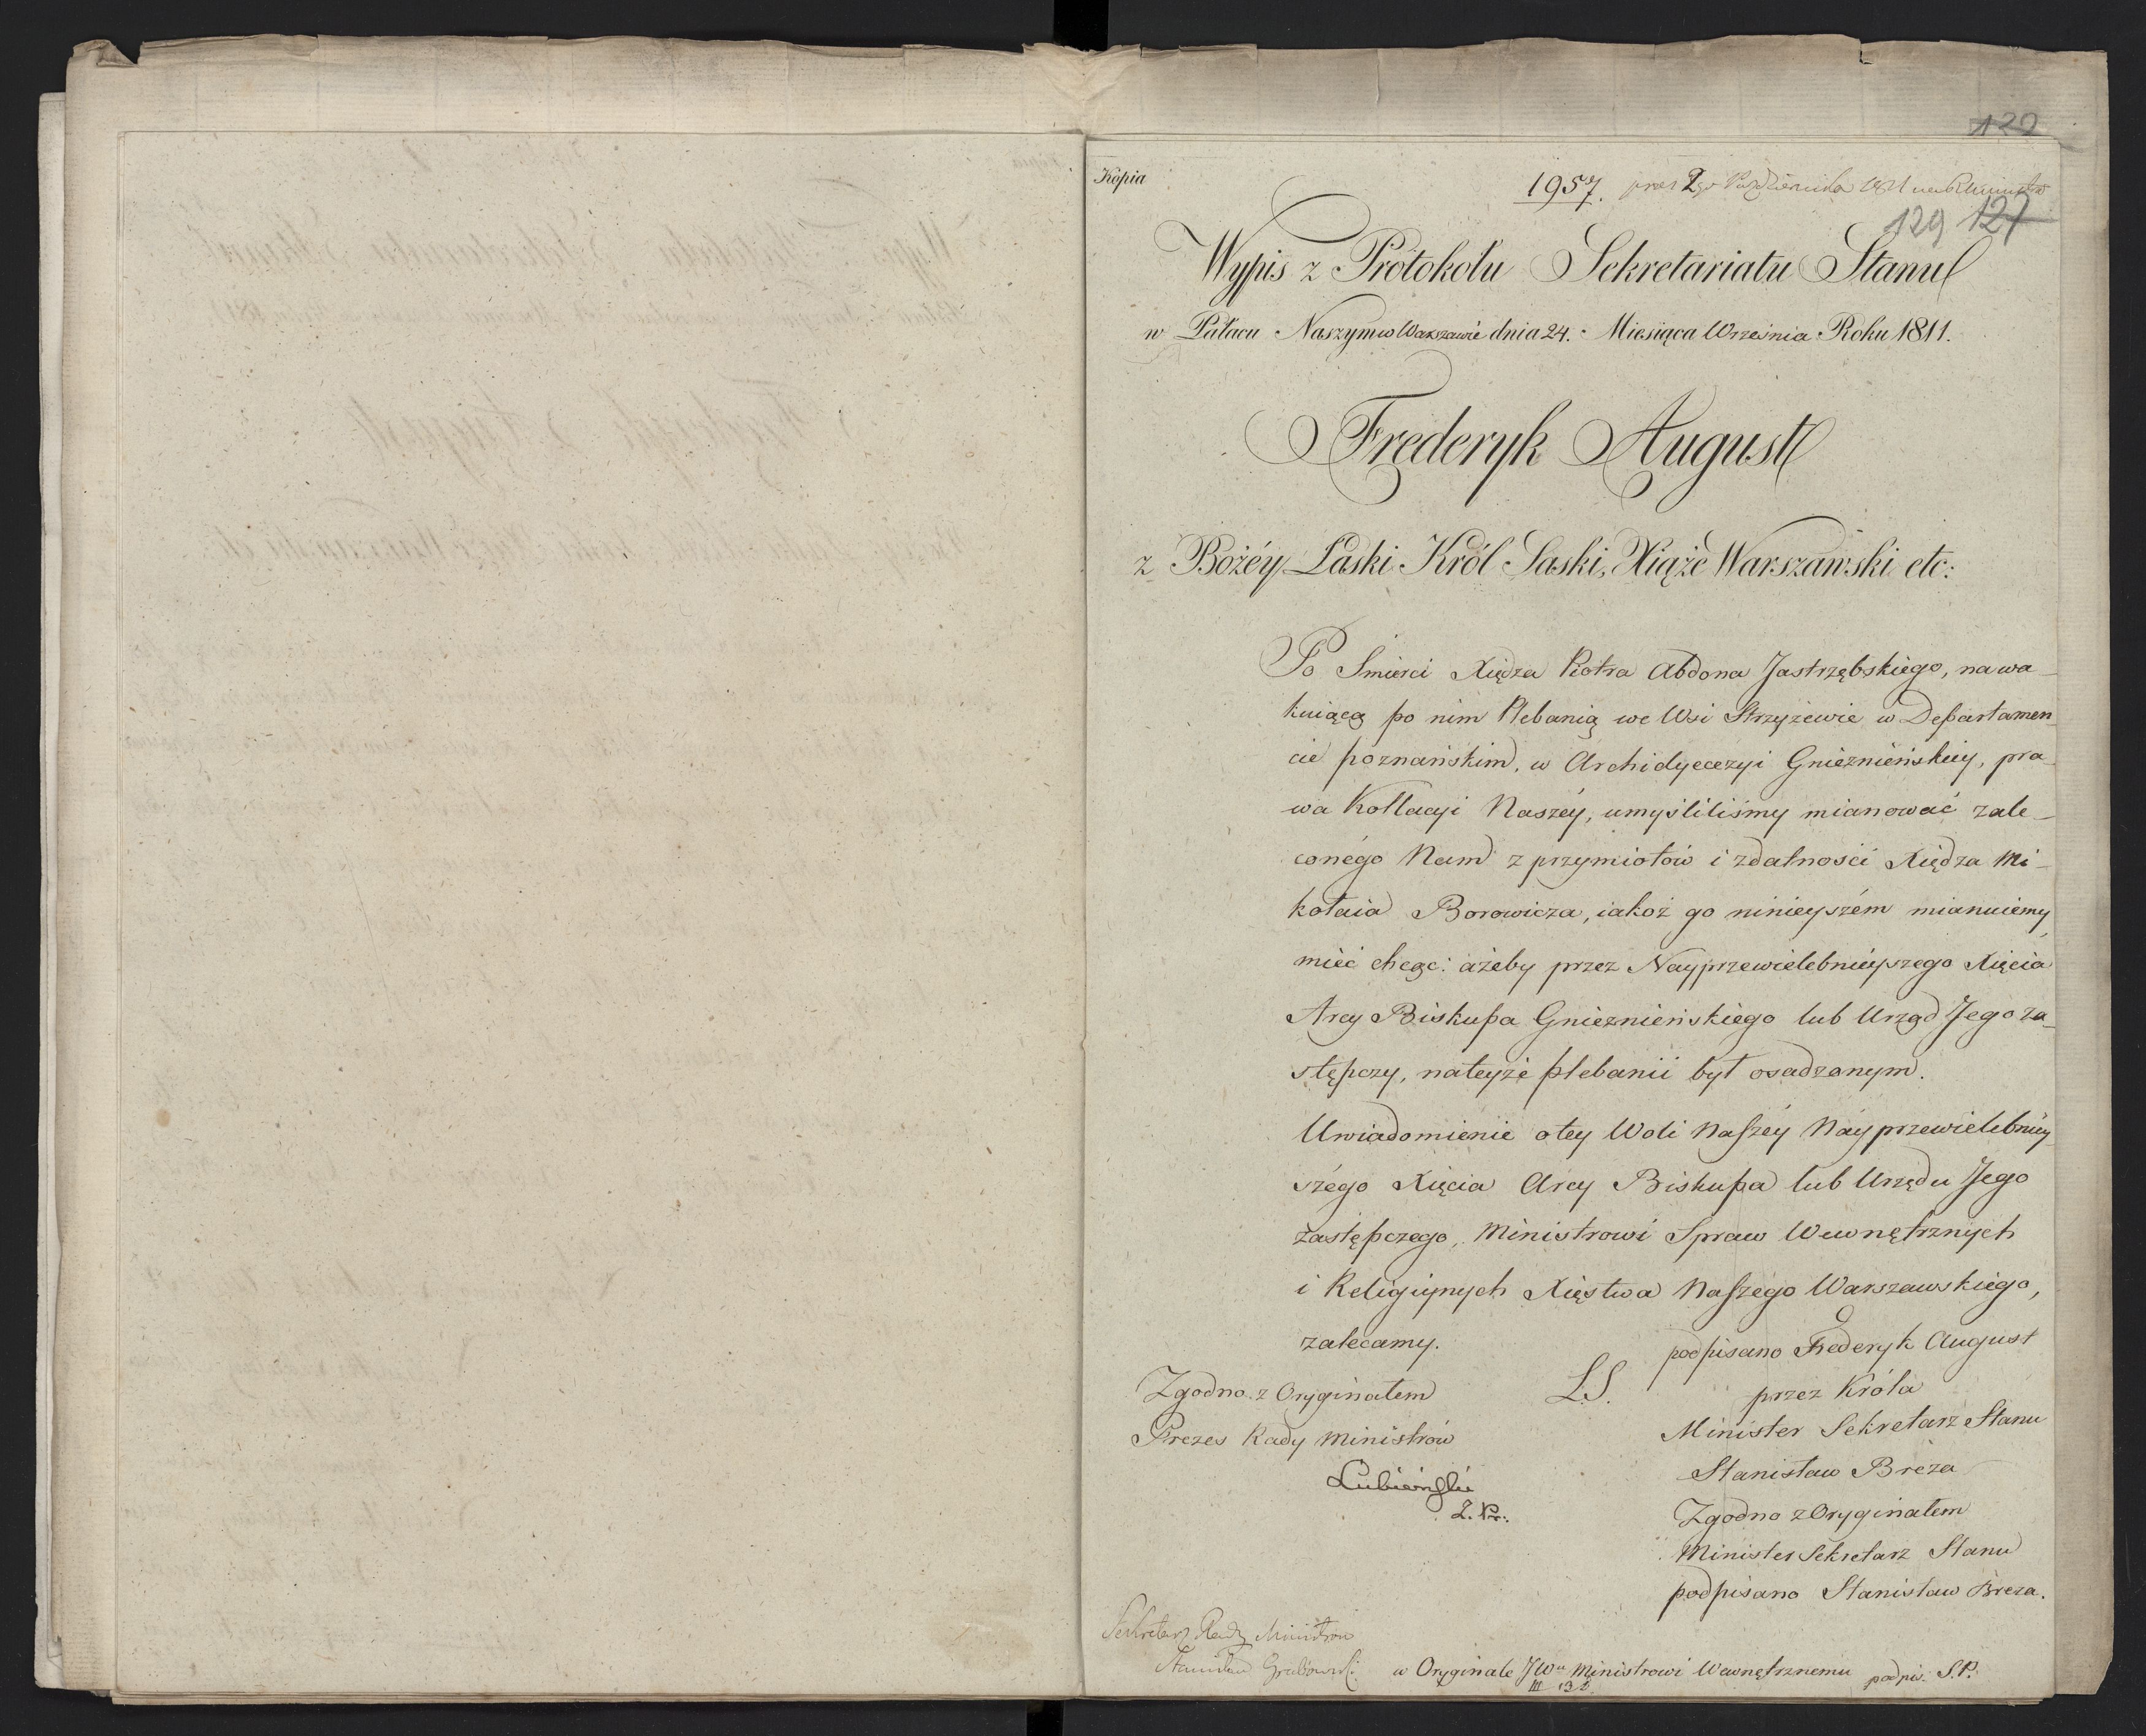 122
Kopia
1957. prez 2go Października 1811 
129 127
Wypis z Protokołu Sekretariatu Stanu
w Pałacu Naszym w Warszawie dnia 24. Miesiąca Września Roku 1811.
Frederyk August
z Bożéy Łaski Król Saski, Xiąże Warszawski etc:
Po Smierci Xiędza Piotra Abdona Jastrzębskiego, na wa-
kuiącą po nim Plebanią we Wsi Strzyżewie w Departamen-
cie poznańskim, w Archidyecezyi Gnieznieńskiey, pra-
wa Kollacyi Naszéy, umyśliliśmy mianować zale-
conégo Nam z przymiotów i zdatności Xiędza Mi-
kołaia Borowicza, iakoż go ninieyszém mianuiemy,
mieć chcąc: ażeby przez Nayprzewielebnieyszego Xięcia
Arcy Biskupa Gnieznieńskiego lub Urząd Jego za-
stępczy, nateyże plebanii był osadzonym.
Uwiadomienie otey Woli Naszéy Nayprzewielebniey-
szégo Xięcia Arcy Biskupa lub Urzędu Jego
zastępczego, Ministrowi Spraw Wewnętrznych
i Religiynych Xięstwa Naszego Warszawskiego,
zalecamy.
podpisano Frederyk August
Zgodno z Oryginałem
L.S.
przez Króla
Prezes Rady Ministrów
Minister Sekretarz Stanu
Lubieński
Stanisław Breza
Z. Pr.
Zgodno z Oryginałem
Minister Sekretarz Stanu
podpisano Stanisław Breza.
Sekretarz Rady Ministrów
Stanisław Grabowski
w Oryginale JWu Ministrowi Wewnętrznemu podpis. S.P.